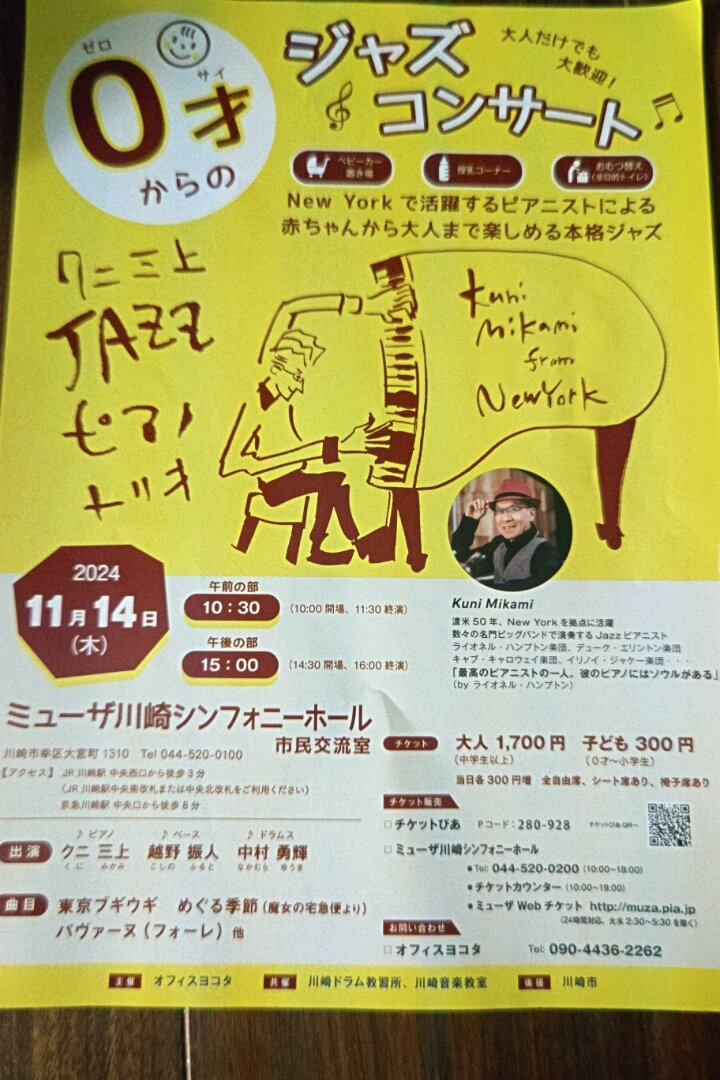 ゼロ サイ
0才
からの
ジャズ
コンサート
大人だけでも
大歓迎！
ベビーカー
置き場
授乳コーナー
おむつ替え
(多目的トイレ)
New York で活躍するピアニストによる
赤ちゃんから大人まで楽しめる本格ジャズ
クニ三上
JAZZ
ピアノ
トリオ
Kuni
Mikami
from
NewYork
2024
11月14日
(木)
午前の部
10：30 （10:00 開場、11:30 終演）
午後の部
15：00 （14:30 開場、16:00 終演）
Kuni Mikami
渡米 50 年、New York を拠点に活躍
数々の名門ビッグバンドで演奏する Jazz ピアニスト
ライオネル・ハンプトン楽団、デューク・エリントン楽団
キャブ・キャロウェイ楽団、イリノイ・ジャケー楽団・・・
「最高のピアニストの一人。彼のピアノにはソウルがある」
(by ライオネル・ハンプトン)
ミューザ川崎シンフォニーホール
市民交流室
川崎市幸区大宮町 1310 Tel 044-520-0100
【アクセス】 JR 川崎駅 中央西口から徒歩 3 分
（JR 川崎駅中央南改札または中央北改札をご利用ください）
京急川崎駅 中央口から徒歩 8 分
チケット 大人 1,700 円 子ども 300 円
（中学生以上） （0才〜小学生）
当日各 300 円増 全自由席、シート席あり、椅子席あり
チケット販売
□ チケットぴあ Pコード：280-928 チケットぴあ QR→
□ ミューザ川崎シンフォニーホール
● Tel: 044-520-0200 (10:00~18:00)
● チケットカウンター (10:00~19:00)
● ミューザ Web チケット http://muza.pia.jp
(24時間対応、火水 2:30~5:30 を除く)
お問い合わせ
□ オフィスヨコタ Tel: 090-4436-2262
出演 ♪ ピアノ ♪ ベース ♪ ドラムス
クニ 三上 越野 振人 中村 勇輝
くに みかみ こしの ふると なかむら ゆうき
曲目 東京ブギウギ めぐる季節（魔女の宅急便より）
パヴァーヌ（フォーレ）他
主催 オフィスヨコタ 共催 川崎ドラム教習所、川崎音楽教室 後援 川崎市